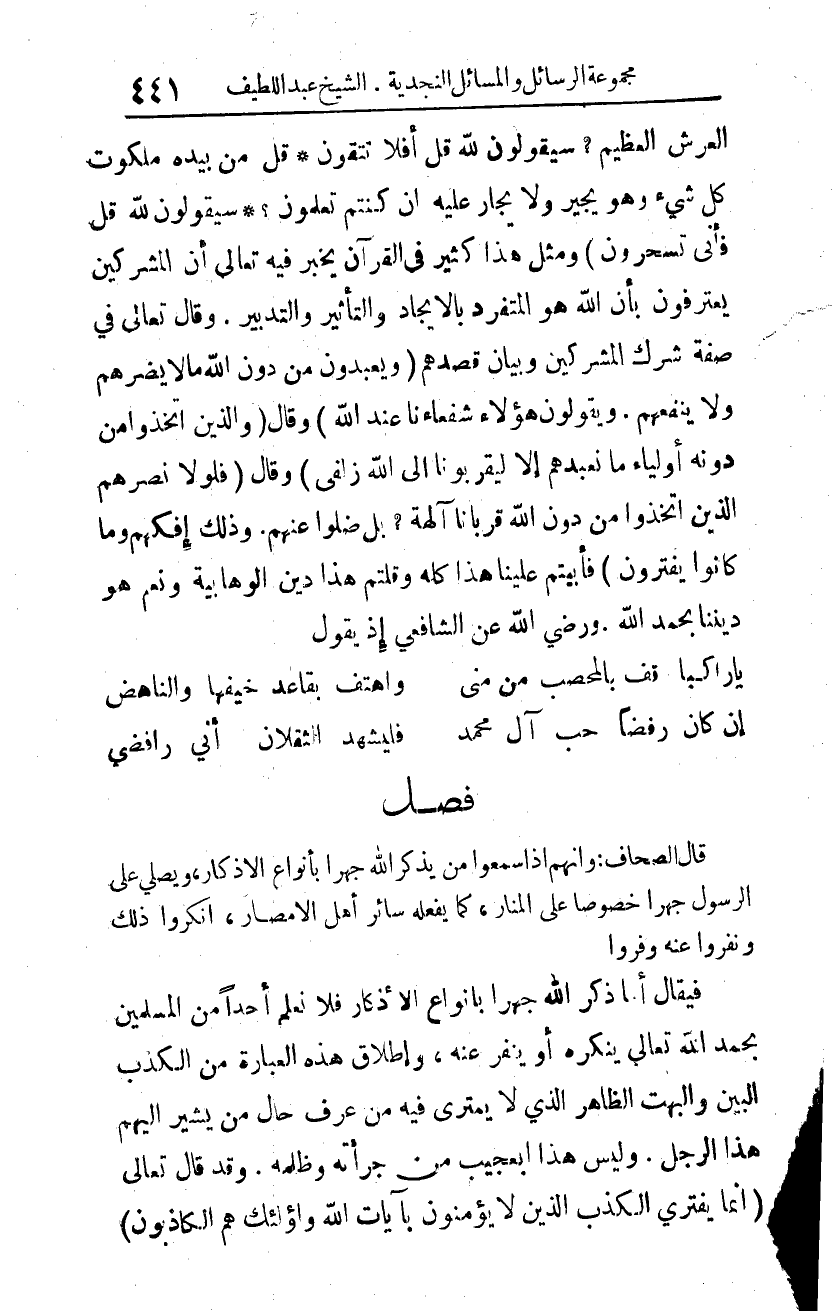 مجموعة الرسائل والمسائل النجدية . الشيخ عبد اللطيف ٤٤١
العرش العظيم ؟ سيقولون لله قل أفلا تتقون * قل من بيده ملكوت
كل شيء وهو يجير ولا يجار عليه ان كنتم تعلمون ؟ * سيقولون لله قل
فأنى تسحرون ) ومثل هذا كثير في القرآن يخبر فيه تعالى أن المشركين
يعترفون بأن الله هو المتفرد بالايجاد والتأثير والتدبير . وقال تعالى في
صفة شرك المشركين وبيان قصدهم ( ويعبدون من دون الله مالا يضرهم
ولا ينفعهم . ويقولون هؤلاء شفعاءنا عند الله ) وقال ( والذين اتخذوا من
دونه أولياء ما نعبدهم إلا ليقربونا الى الله زلفى ) وقال ( فلولا نصرهم
الذين اتخذوا من دون الله قربانا آلهة ؟ بل ضلوا عنهم. وذلك إفكهم وما
كانوا يفترون ) فأبيتم علينا هذا كله وقلتم هذا دين الوهابية ونعم هو
ديننا بحمد الله . ورضي الله عن الشافعي إذ يقول
ياراكبا قف بالمحصب من منى واهتف بقاعد خيفها والناهض
إن كان رفضاً حب آل محمد فليشهد الثقلان أني رافضي
فصل
قال الصحاف: وانهم اذا سمعوا من يذكر الله جهرا بأنواع الاذكار، ويصلي على
الرسول جهرا خصوصا على المنار ، كما يفعله سائر أهل الامصار ، انكروا ذلك
ونفروا عنه وفروا
فيقال أما ذكر الله جهرا بانواع الاذكار فلا نعلم أحداً من المسلمين
بحمد الله تعالى ينكره أو ينفر عنه ، وإطلاق هذه العبارة من الكذب
البين والبهت الظاهر الذي لا يمترى فيه من عرف حال من يشير اليهم
هذا الرجل . وليس هذا ابعجيب من جرأته وظلمه . وقد قال تعالى
( انما يفتري الكذب الذين لا يؤمنون بآيات الله واؤلئك هم الكاذبون)